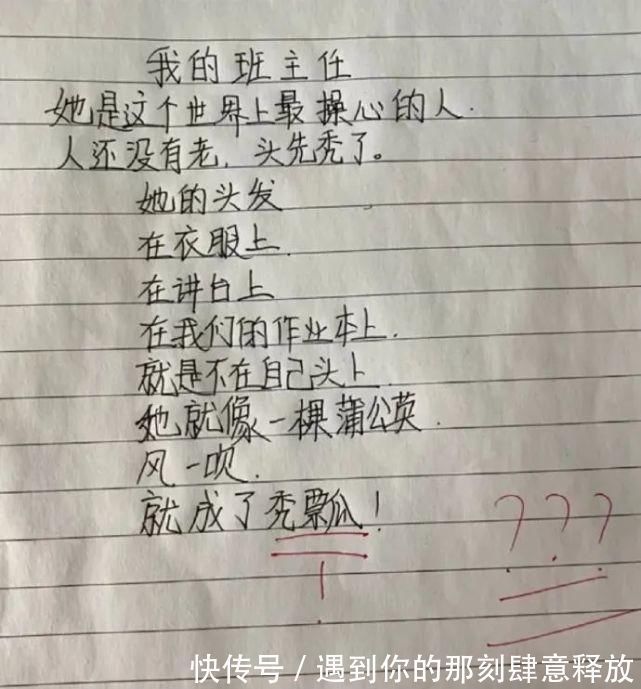 我的班主任
她是这个世界上最操心的人.
人还没有老,头先秃了。
她的头发
在衣服上.
在讲台上
在我们的作业本上.
就是不在自己头上
她就像一棵蒲公英.
风一吹.
就成了秃瓢!
???
快传号/遇到你的那刻肆意释放